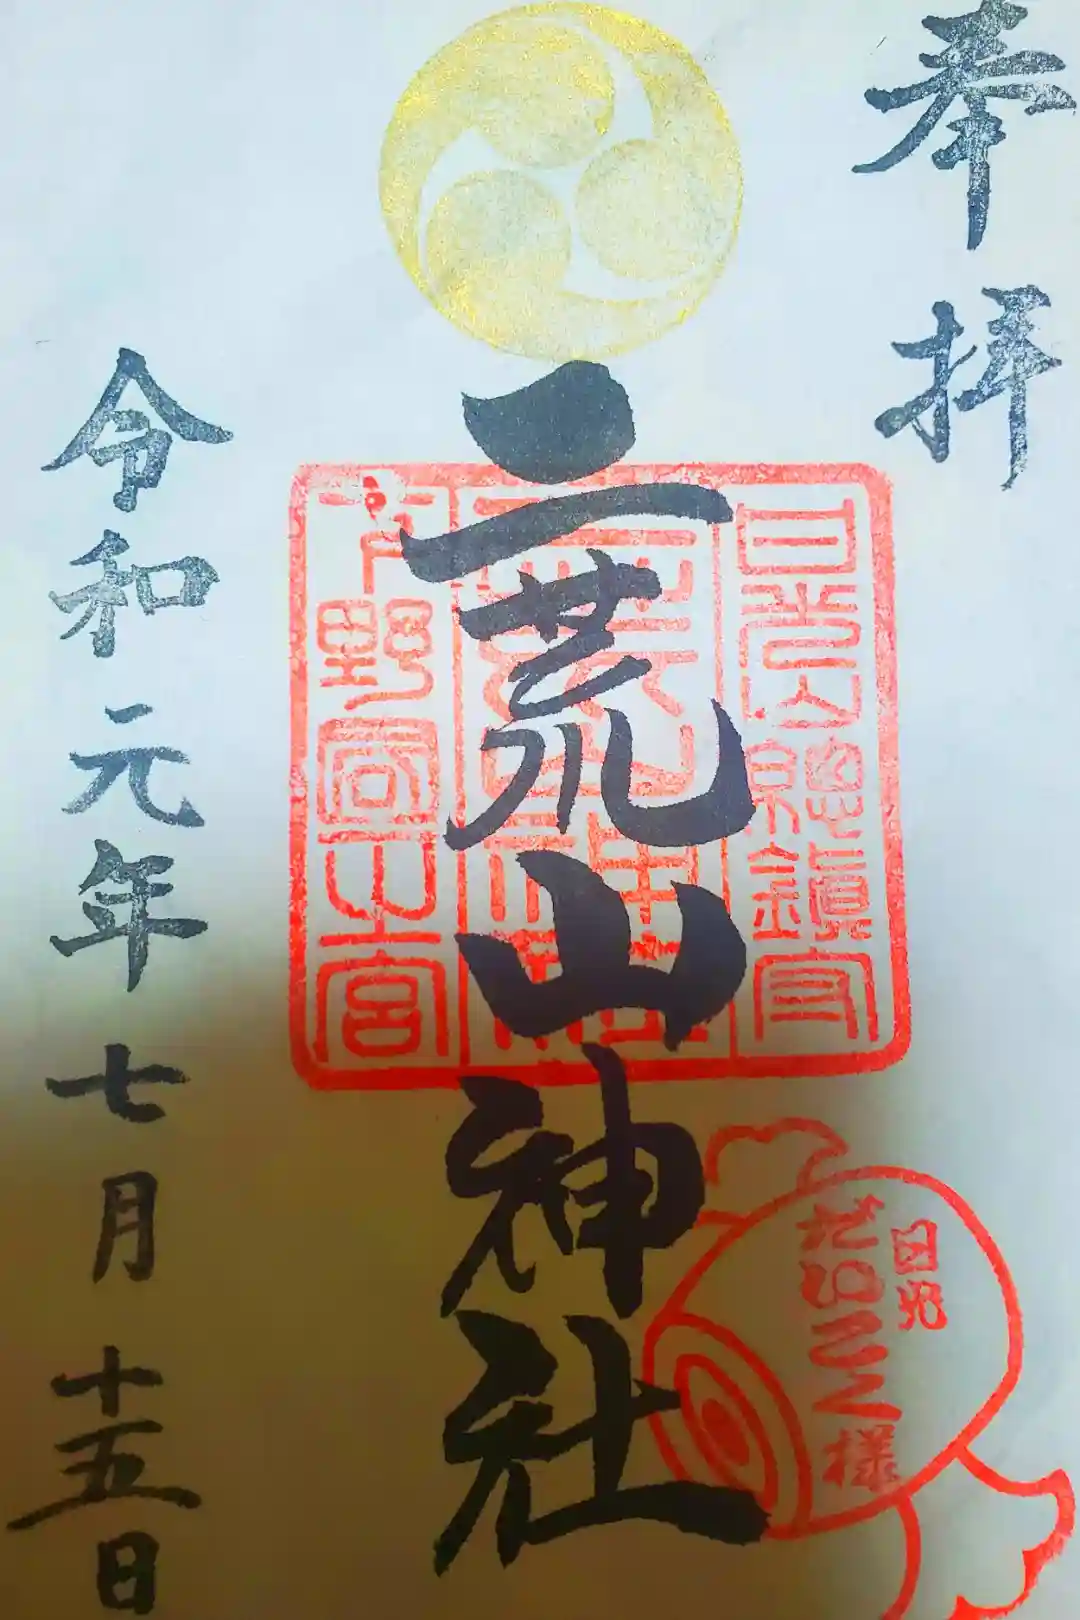 奉拝
二荒山神社
日光山總鎮守
下野國一之宮
日光
だいこく様
令和元年七月十五日